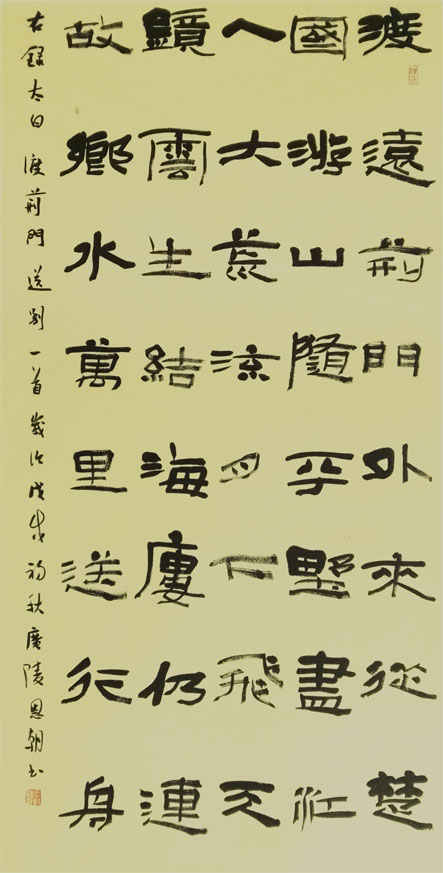 渡遠荊門外來從楚
國游山隨平墅盡江
入大荒流月下飛天
鏡雲生結海廔仍連
故鄉水萬里送行舟
右錄太白渡荊門送別一首歲次戊戌初秋廣陵恩朝書